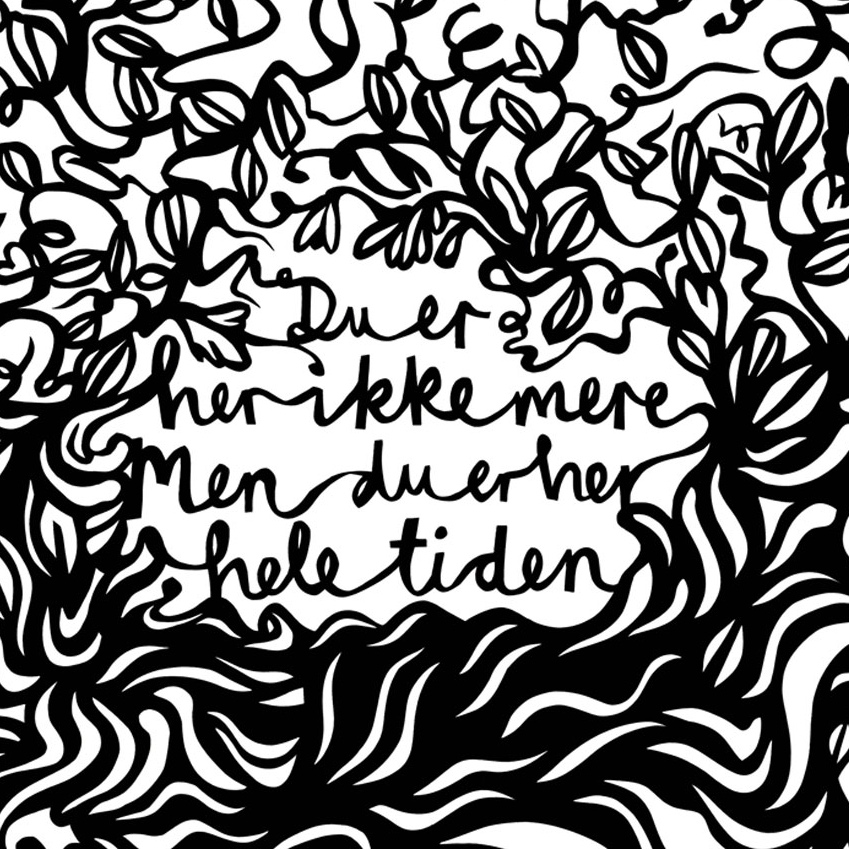 Du er
her ikke mere
Men du er her
hele tiden